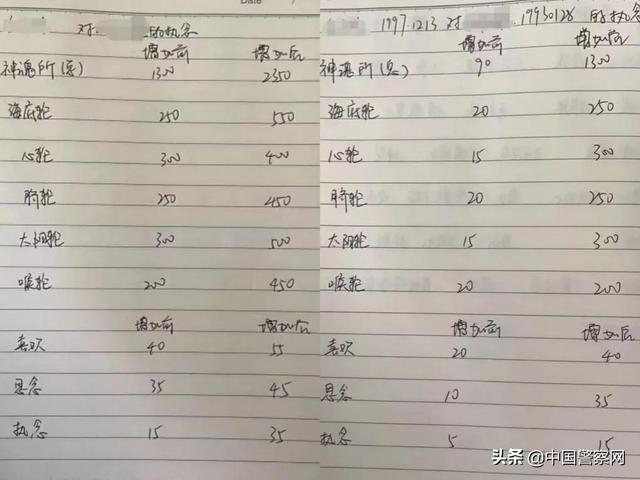 Date
对 的执念
增加前 增加后
神魂所(总) 1300 2350
海底轮 250 550
心轮 300 400
脐轮 250 450
太阳轮 300 500
喉轮 200 450
增加前 增加后
喜欢 40 55
思念 35 45
执念 15 35
19971213 对 19930128 的执念
增加前 增加后
神魂所(总) 90 1300
海底轮 20 250
心轮 15 300
脐轮 20 250
太阳轮 15 300
喉轮 20 200
增加前 增加后
喜欢 20 40
思念 10 35
执念 5 15
头条 @中国警察网